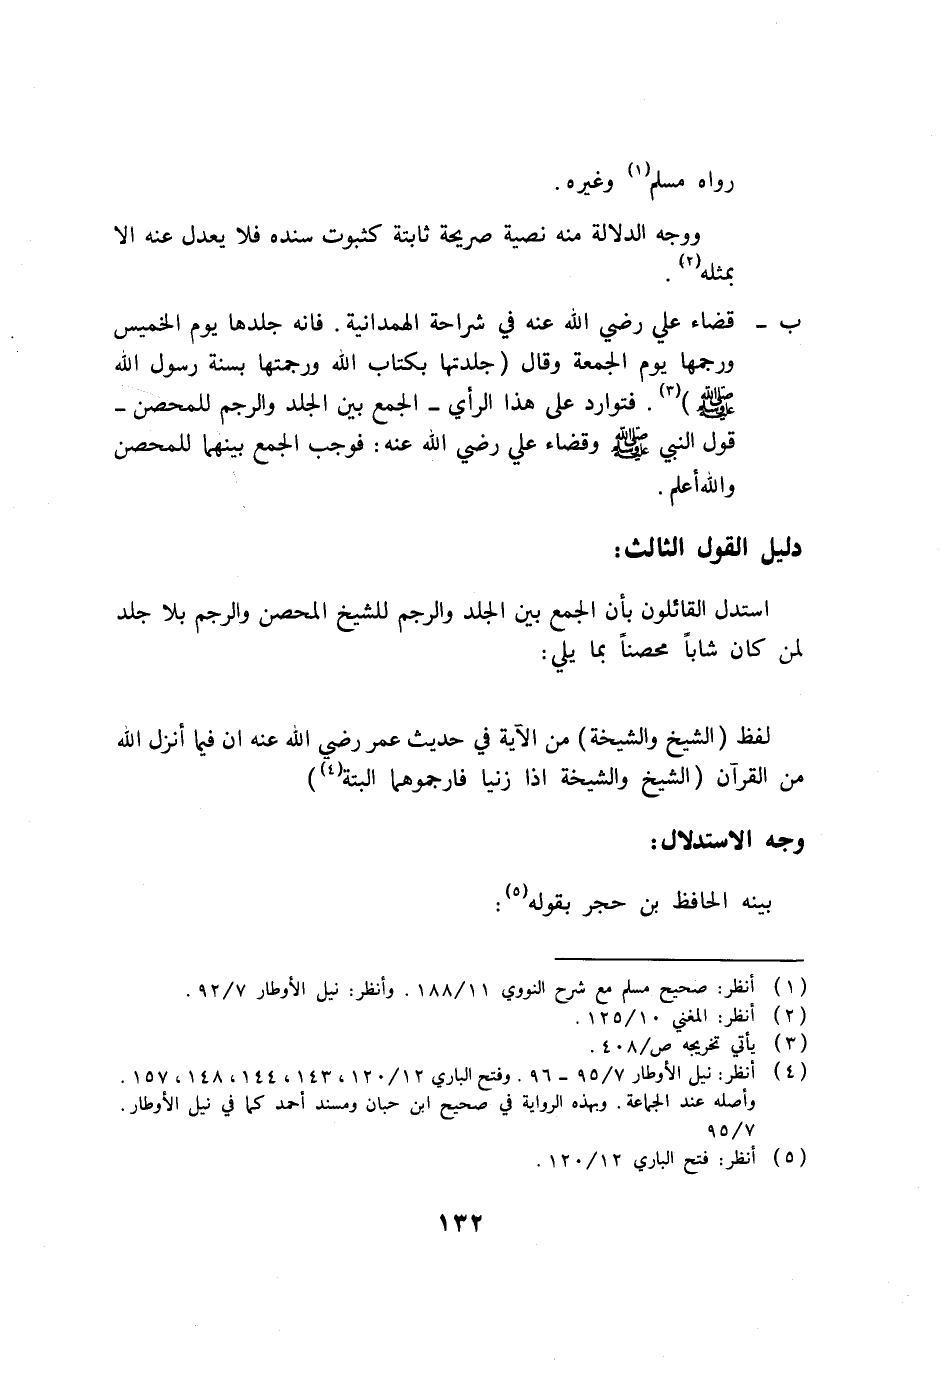 رواه مسلم(١) وغيره .
ووجه الدلالة منه نصية صريحة ثابتة كثبوت سنده فلا يعدل عنه الا
بمثله(٢) .
ب ـ قضاء علي رضي الله عنه في شراحة الهمدانية . فانه جلدها يوم الخميس
ورجمها يوم الجمعة وقال (جلدتها بكتاب الله ورجمتها بسنة رسول الله
ﷺ )(٣) . فتوارد على هذا الرأي ـ الجمع بين الجلد والرجم للمحصن ـ
قول النبي ﷺ وقضاء علي رضي الله عنه : فوجب الجمع بينهما للمحصن
والله أعلم .
دليل القول الثالث :
استدل القائلون بأن الجمع بين الجلد والرجم للشيخ المحصن والرجم بلا جلد
لمن كان شاباً محصناً بما يلي :
لفظ (الشيخ والشيخة) من الآية في حديث عمر رضي الله عنه ان فيما أنزل الله
من القرآن (الشيخ والشيخة اذا زنيا فارجموهما البتة(٤))
وجه الاستدلال :
بينه الحافظ بن حجر بقوله(٥) :
(١) أنظر : صحيح مسلم مع شرح النووي ١٨٨/١١ . وأنظر : نيل الأوطار ٩٢/٧ .
(٢) أنظر : المغني ١٢٥/١٠ .
(٣) يأتي تخريجه ص/٤٠٨ .
(٤) أنظر : نيل الأوطار ٩٥/٧ ـ ٩٦ . وفتح الباري ١٢٠/١٢ ، ١٤٣ ، ١٤٤ ، ١٤٨ ، ١٥٧ .
وأصله عند الجماعة . وبهذه الرواية في صحيح ابن حبان ومسند أحمد كما في نيل الأوطار .
٩٥/٧
(٥) أنظر : فتح الباري ١٢٠/١٢ .
١٣٢